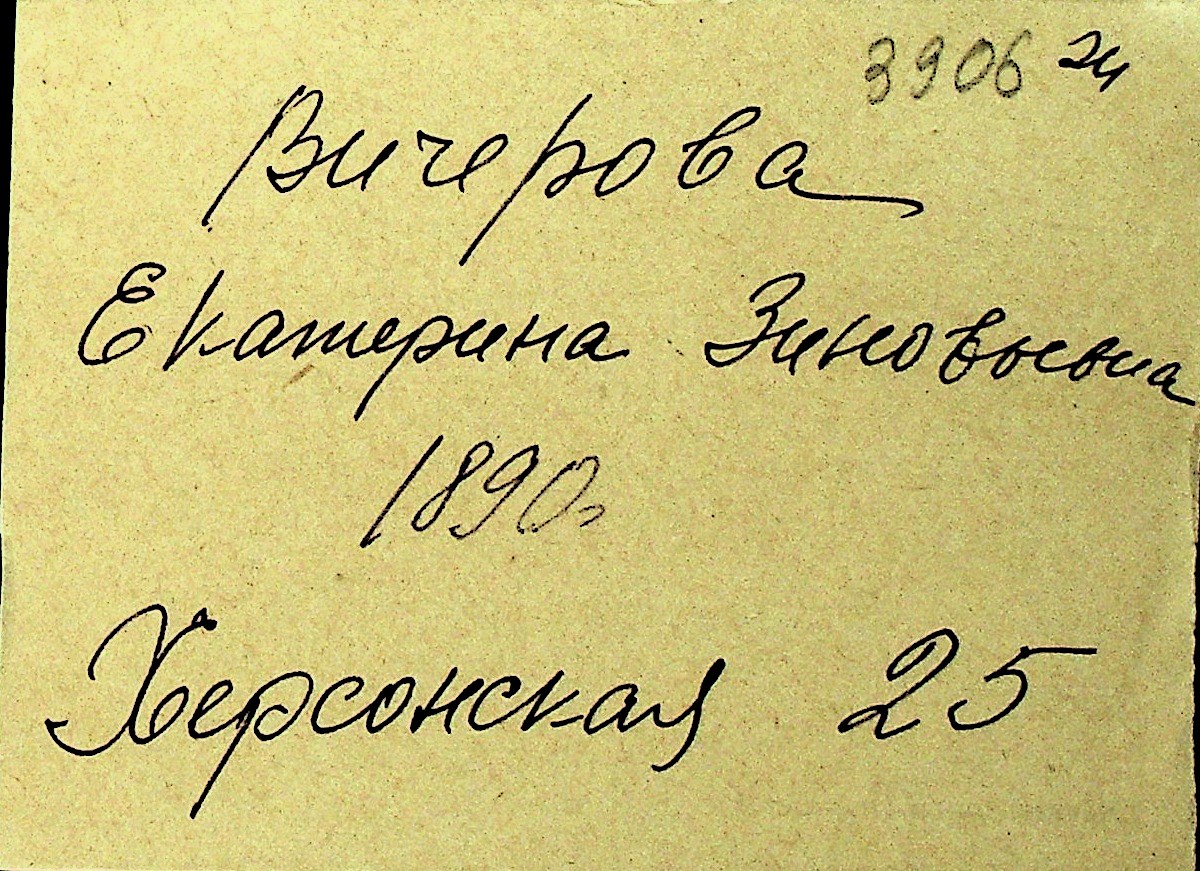 3906 эи
Вичерова
Екатерина Зиновьевна
1890г
Херсонская 25